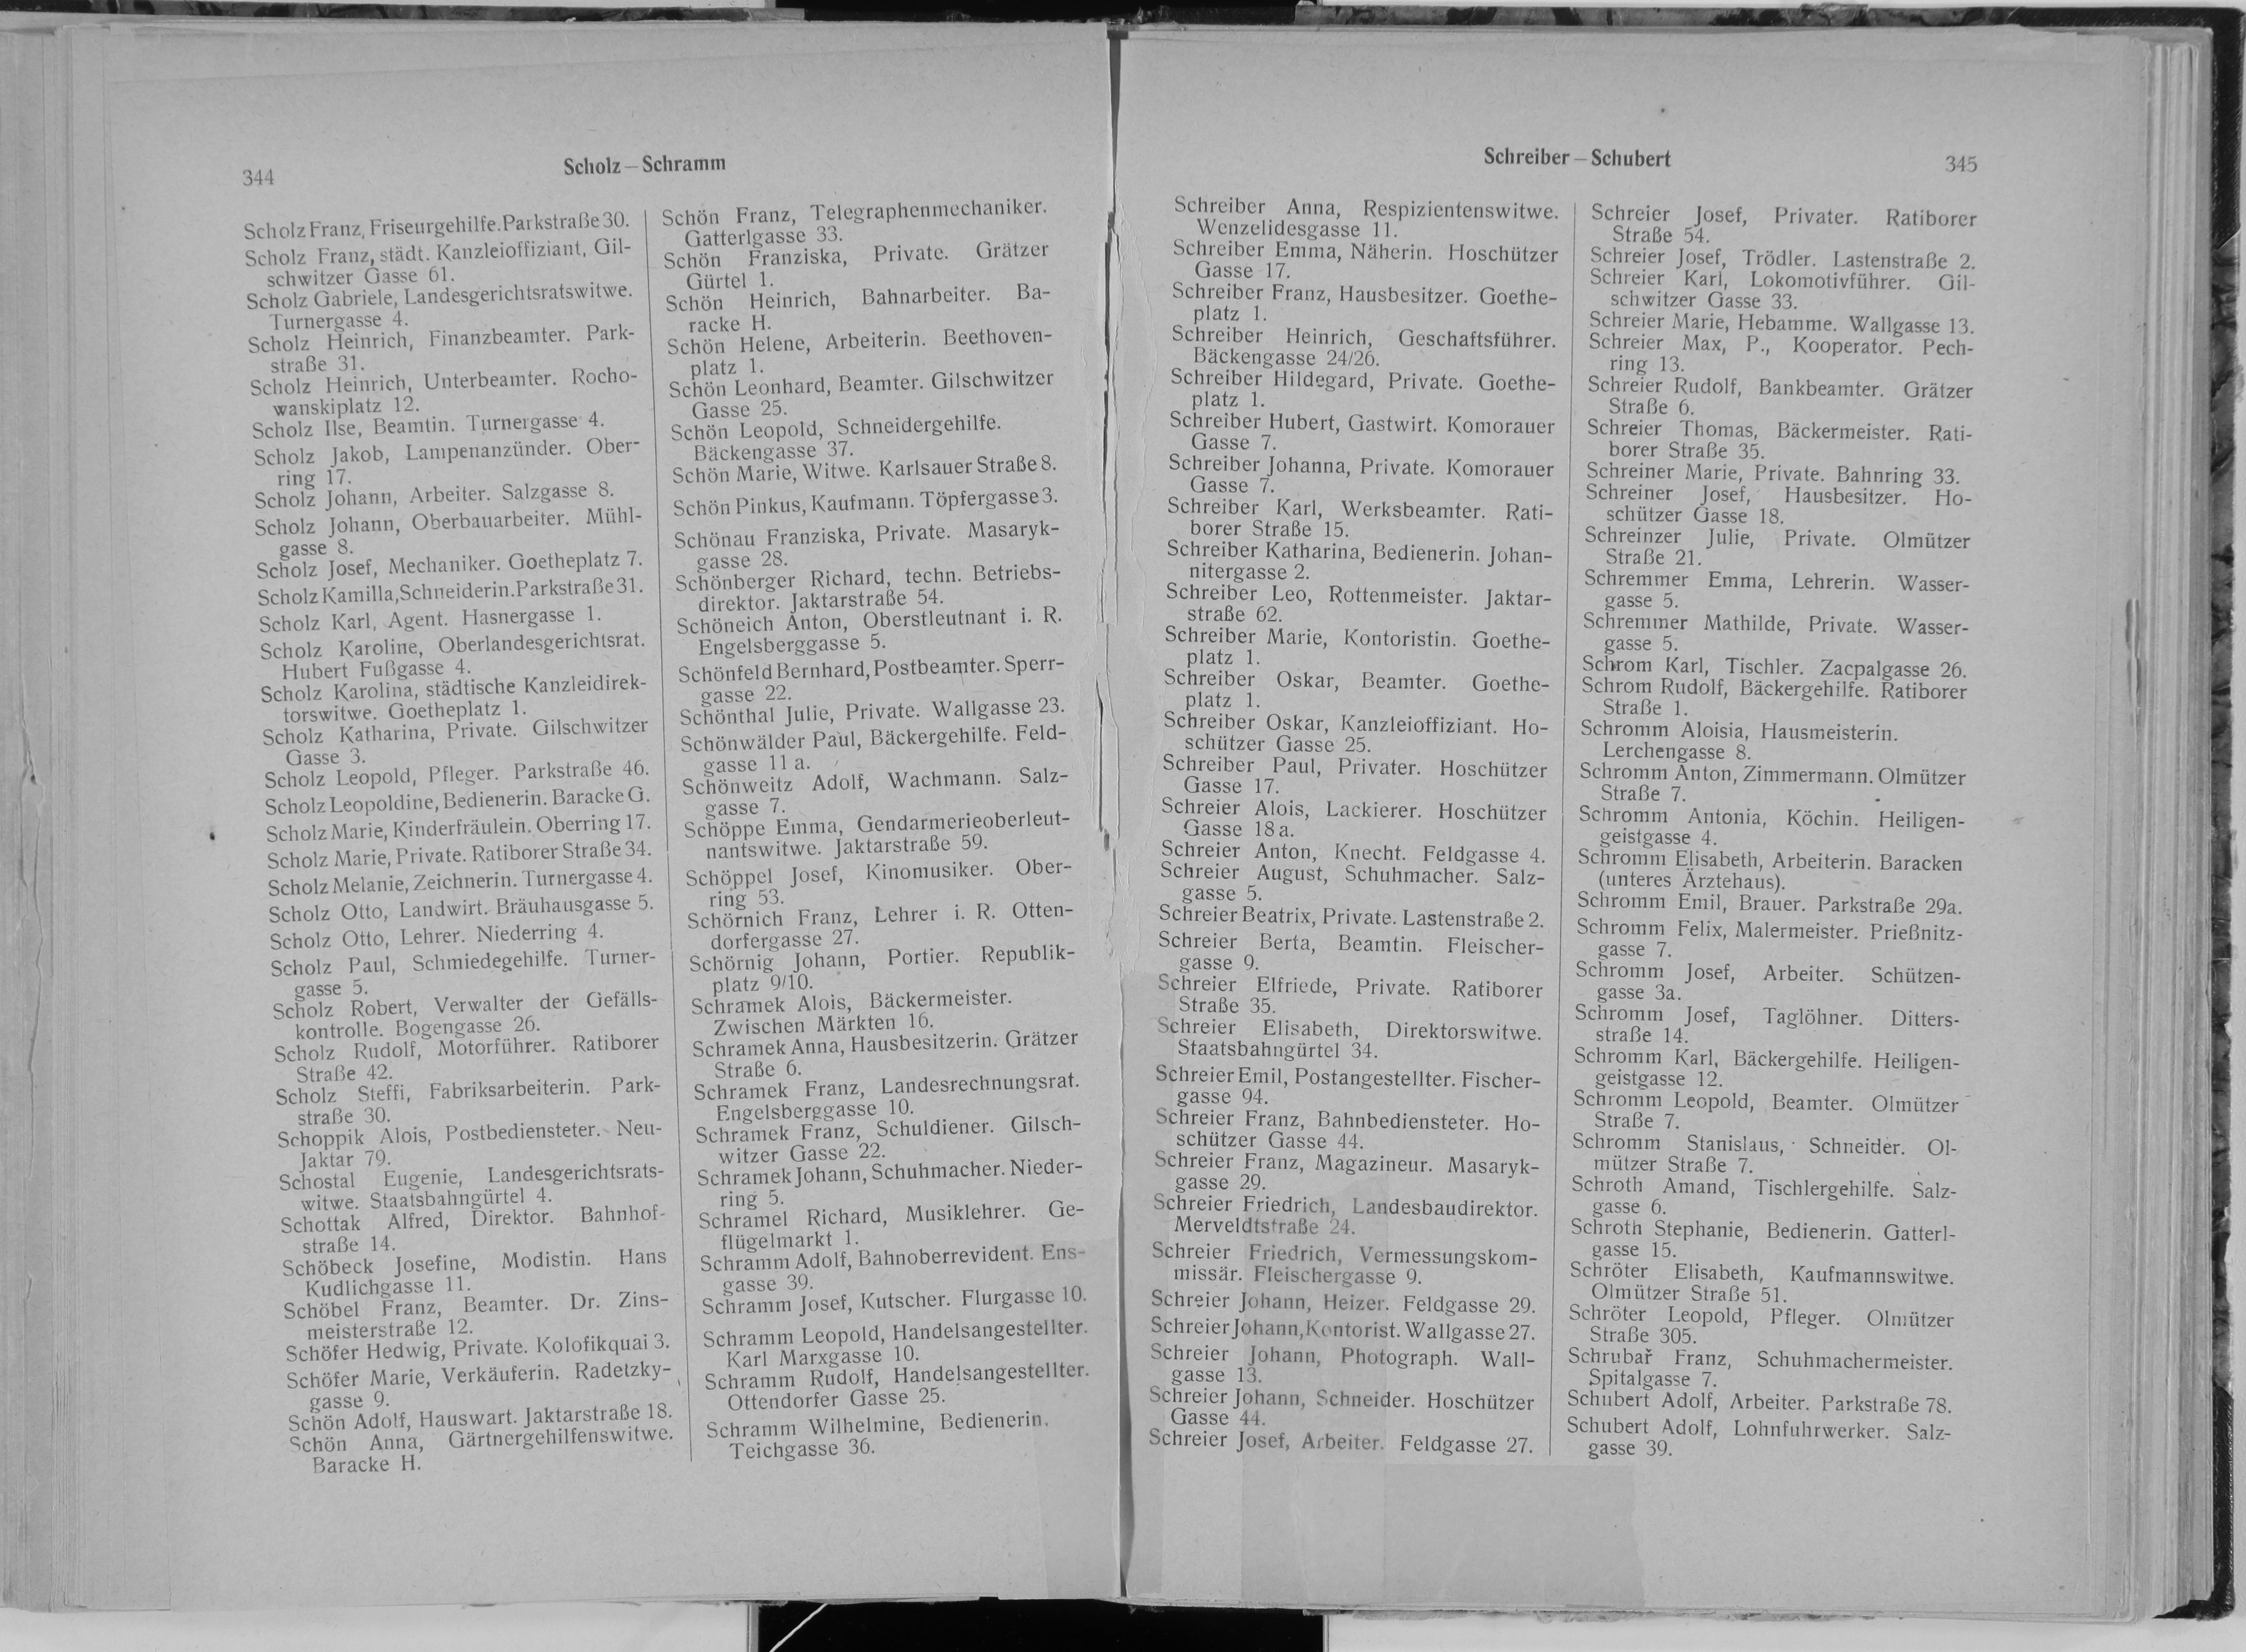 344
Scholz – Schramm
Scholz Franz, Friseurgehilfe. Parkstraße 30.
Scholz Franz, städt. Kanzleioffiziant, Gil-
schwitzer Gasse 61.
Scholz Gabriele, Landesgerichtsratswitwe.
Turnergasse 4.
Scholz Heinrich, Finanzbeamter. Park-
straße 31.
Scholz Heinrich, Unterbeamter. Rocho-
wanskiplatz 12.
Scholz Ilse, Beamtin. Turnergasse 4.
Scholz Jakob, Lampenanzünder. Ober-
ring 17.
Scholz Johann, Arbeiter. Salzgasse 8.
Scholz Johann, Oberbauarbeiter. Mühl-
gasse 8.
Scholz Josef, Mechaniker. Goetheplatz 7.
Scholz Kamilla, Schneiderin. Parkstraße 31.
Scholz Karl, Agent. Hasnergasse 1.
Scholz Karoline, Oberlandesgerichtsrat.
Hubert Fußgasse 4.
Scholz Karolina, städtische Kanzleidirek-
torswitwe. Goetheplatz 1.
Scholz Katharina, Private. Gilschwitzer
Gasse 3.
Scholz Leopold, Pfleger. Parkstraße 46.
Scholz Leopoldine, Bedienerin. Baracke G.
Scholz Marie, Kinderfräulein. Oberring 17.
Scholz Marie, Private. Ratiborer Straße 34.
Scholz Melanie, Zeichnerin. Turnergasse 4.
Scholz Otto, Landwirt. Bräuhausgasse 5.
Scholz Otto, Lehrer. Niederring 4.
Scholz Paul, Schmiedegehilfe. Turner-
gasse 5.
Scholz Robert, Verwalter der Gefälls-
kontrolle. Bogengasse 26.
Scholz Rudolf, Motorführer. Ratiborer
Straße 42.
Scholz Steffi, Fabriksarbeiterin. Park-
straße 30.
Schoppik Alois, Postbediensteter. Neu-
Jaktar 79.
Schostal Eugenie, Landesgerichtsrats-
witwe. Staatsbahngürtel 4.
Schottak Alfred, Direktor. Bahnhof-
straße 14.
Schöbeck Josefine, Modistin. Hans
Kudlichgasse 11.
Schöbel Franz, Beamter. Dr. Zins-
meisterstraße 12.
Schöfer Hedwig, Private. Kolofikquai 3.
Schöfer Marie, Verkäuferin. Radetzky-
gasse 9.
Schön Adolf, Hauswart. Jaktarstraße 18.
Schön Anna, Gärtnergehilfenswitwe.
Baracke H.
Schön Franz, Telegraphenmechaniker.
Gatterlgasse 33.
Schön Franziska, Private. Grätzer
Gürtel 1.
Schön Heinrich, Bahnarbeiter. Ba-
racke H.
Schön Helene, Arbeiterin. Beethoven-
platz 1.
Schön Leonhard, Beamter. Gilschwitzer
Gasse 25.
Schön Leopold, Schneidergehilfe.
Bäckengasse 37.
Schön Marie, Witwe. Karlsauer Straße 8.
Schön Pinkus, Kaufmann. Töpfergasse 3.
Schönau Franziska, Private. Masaryk-
gasse 28.
Schönberger Richard, techn. Betriebs-
direktor. Jaktarstraße 54.
Schöneich Anton, Oberstleutnant i. R.
Engelsberggasse 5.
Schönfeld Bernhard, Postbeamter. Sperr-
gasse 22.
Schönthal Julie, Private. Wallgasse 23.
Schönwälder Paul, Bäckergehilfe. Feld-
gasse 11 a.
Schönweitz Adolf, Wachmann. Salz-
gasse 7.
Schöppe Emma, Gendarmerieoberleut-
nantswitwe. Jaktarstraße 59.
Schöppel Josef, Kinomusiker. Ober-
ring 53.
Schörnich Franz, Lehrer i. R. Otten-
dorfergasse 27.
Schörnig Johann, Portier. Republik-
platz 9/10.
Schramek Alois, Bäckermeister.
Zwischen Märkten 16.
Schramek Anna, Hausbesitzerin. Grätzer
Straße 6.
Schramek Franz, Landesrechnungsrat.
Engelsberggasse 10.
Schramek Franz, Schuldiener. Gilsch-
witzer Gasse 22.
Schramek Johann, Schuhmacher. Nieder-
ring 5.
Schramel Richard, Musiklehrer. Ge-
flügelmarkt 1.
Schramm Adolf, Bahnoberrevident. Ens-
gasse 39.
Schramm Josef, Kutscher. Flurgasse 10.
Schramm Leopold, Handelsangestellter.
Karl Marxgasse 10.
Schramm Rudolf, Handelsangestellter.
Ottendorfer Gasse 25.
Schramm Wilhelmine, Bedienerin.
Teichgasse 36.
Schreiber – Schubert
345
Schreiber Anna, Respizientenswitwe.
Wenzelidesgasse 11.
Schreiber Emma, Näherin. Hoschützer
Gasse 17.
Schreiber Franz, Hausbesitzer. Goethe-
platz 1.
Schreiber Heinrich, Geschaftsführer.
Bäckengasse 24/26.
Schreiber Hildegard, Private. Goethe-
platz 1.
Schreiber Hubert, Gastwirt. Komorauer
Gasse 7.
Schreiber Johanna, Private. Komorauer
Gasse 7.
Schreiber Karl, Werksbeamter. Rati-
borer Straße 15.
Schreiber Katharina, Bedienerin. Johan-
nitergasse 2.
Schreiber Leo, Rottenmeister. Jaktar-
straße 62.
Schreiber Marie, Kontoristin. Goethe-
platz 1.
Schreiber Oskar, Beamter. Goethe-
platz 1.
Schreiber Oskar, Kanzleioffiziant. Ho-
schützer Gasse 25.
Schreiber Paul, Privater. Hoschützer
Gasse 17.
Schreier Alois, Lackierer. Hoschützer
Gasse 18 a.
Schreier Anton, Knecht. Feldgasse 4.
Schreier August, Schuhmacher. Salz-
gasse 5.
Schreier Beatrix, Private. Lastenstraße 2.
Schreier Berta, Beamtin. Fleischer-
gasse 9.
Schreier Elfriede, Private. Ratiborer
Straße 35.
Schreier Elisabeth, Direktorswitwe.
Staatsbahngürtel 34.
Schreier Emil, Postangestellter. Fischer-
gasse 94.
Schreier Franz, Bahnbediensteter. Ho-
schützer Gasse 44.
Schreier Franz, Magazineur. Masaryk-
gasse 29.
Schreier Friedrich, Landesbaudirektor.
Merveldtstraße 24.
Schreier Friedrich, Vermessungskom-
missär. Fleischergasse 9.
Schreier Johann, Heizer. Feldgasse 29.
Schreier Johann, Kontorist. Wallgasse 27.
Schreier Johann, Photograph. Wall-
gasse 13.
Schreier Johann, Schneider. Hoschützer
Gasse 44.
Schreier Josef, Arbeiter. Feldgasse 27.
Schreier Josef, Privater. Ratiborer
Straße 54.
Schreier Josef, Trödler. Lastenstraße 2.
Schreier Karl, Lokomotivführer. Gil-
schwitzer Gasse 33.
Schreier Marie, Hebamme. Wallgasse 13.
Schreier Max, P., Kooperator. Pech-
ring 13.
Schreier Rudolf, Bankbeamter. Grätzer
Straße 6.
Schreier Thomas, Bäckermeister. Rati-
borer Straße 35.
Schreiner Marie, Private. Bahnring 33.
Schreiner Josef, Hausbesitzer. Ho-
schützer Gasse 18.
Schreinzer Julie, Private. Olmützer
Straße 21.
Schremmer Emma, Lehrerin. Wasser-
gasse 5.
Schremmer Mathilde, Private. Wasser-
gasse 5.
Schrom Karl, Tischler. Zacpalgasse 26.
Schrom Rudolf, Bäckergehilfe. Ratiborer
Straße 1.
Schromm Aloisia, Hausmeisterin.
Lerchengasse 8.
Schromm Anton, Zimmermann. Olmützer
Straße 7.
Schromm Antonia, Köchin. Heiligen-
geistgasse 4.
Schromm Elisabeth, Arbeiterin. Baracken
(unteres Ärztehaus).
Schromm Emil, Brauer. Parkstraße 29a.
Schromm Felix, Malermeister. Prießnitz-
gasse 7.
Schromm Josef, Arbeiter. Schützen-
gasse 3a.
Schromm Josef, Taglöhner. Ditters-
straße 14.
Schromm Karl, Bäckergehilfe. Heiligen-
geistgasse 12.
Schromm Leopold, Beamter. Olmützer
Straße 7.
Schromm Stanislaus, Schneider. Ol-
mützer Straße 7.
Schroth Amand, Tischlergehilfe. Salz-
gasse 6.
Schroth Stephanie, Bedienerin. Gatterl-
gasse 15.
Schröter Elisabeth, Kaufmannswitwe.
Olmützer Straße 51.
Schröter Leopold, Pfleger. Olmützer
Straße 305.
Schrubař Franz, Schuhmachermeister.
Spitalgasse 7.
Schubert Adolf, Arbeiter. Parkstraße 78.
Schubert Adolf, Lohnfuhrwerker. Salz-
gasse 39.